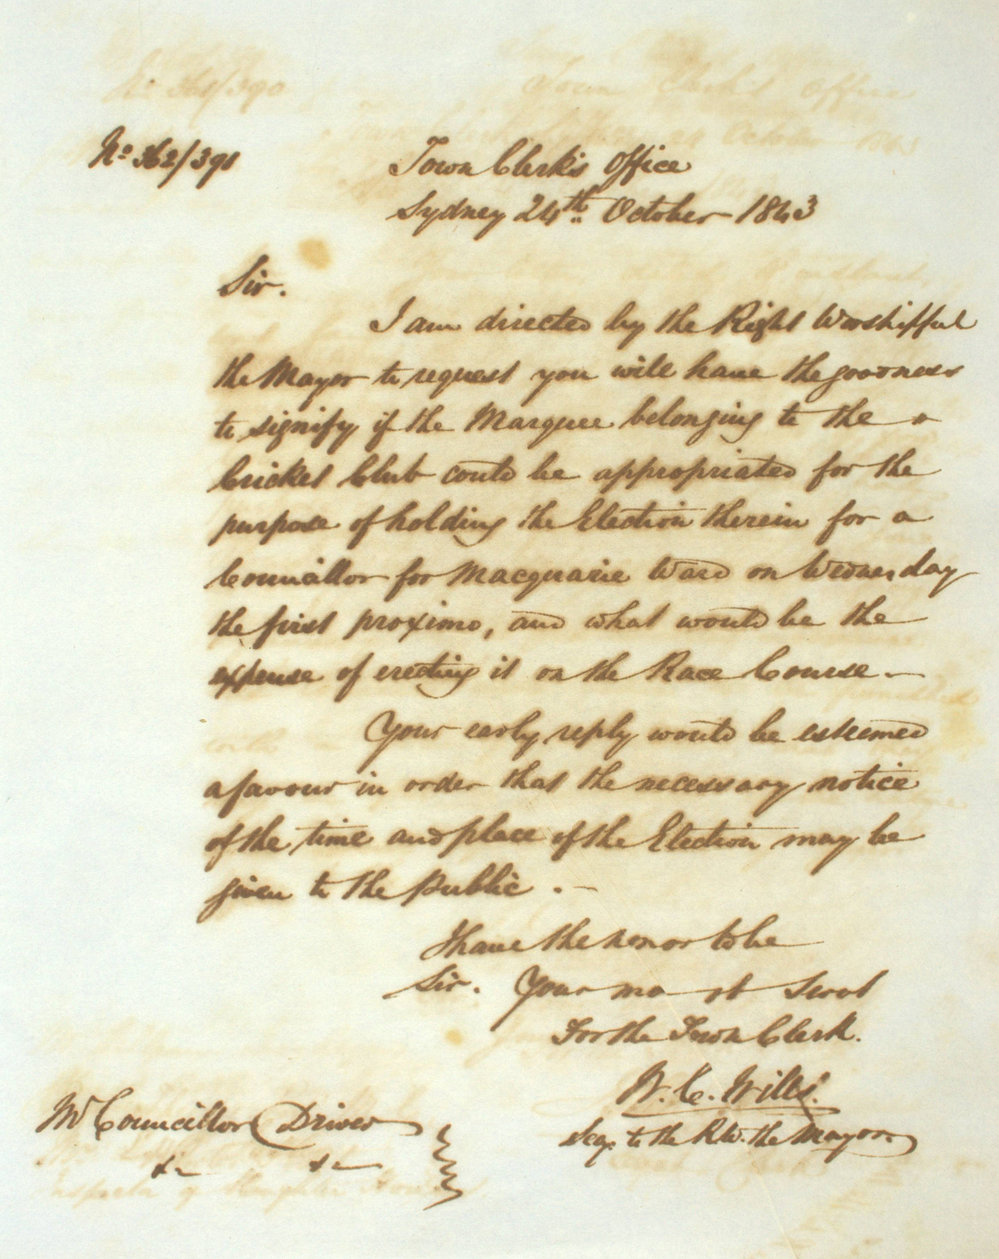 No 362/391
Town Clerk's Office
Sydney 24th October 1843
Sir.
I am directed by the Right Worshipful
the Mayor to request you will have the goodness
to signify if the Marquee belonging to the
Cricket Club could be appropriated for the
purpose of holding the Election therein for a
Councillor for Macquarie Ward on Wednesday
the first proximo, and what would be the
expense of erecting it on the Race Course.—
Your early reply would be esteemed
a favour in order that the necessary notice
of the time and place of the Election may be
given to the public.—
I have the honor to be
Sir. Your mo st Servt
For the Town Clerk.
W. C. Wills.
Secy. to the R.W. the Mayor.
Mr Councillor Driver
&c &c